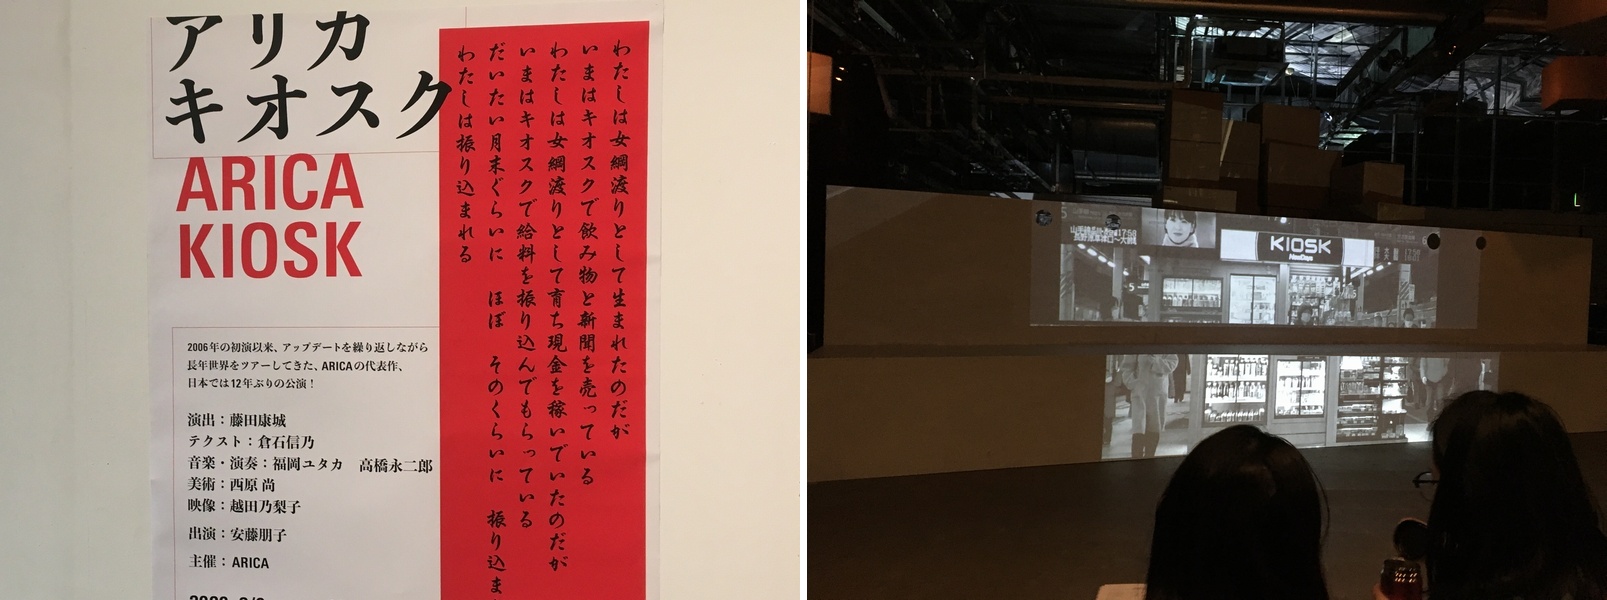 アリカ
キオスク
ARICA
KIOSK
2006年の初演以来、アップデートを繰り返しながら
長年世界をツアーしてきた、ARICAの代表作、
日本では12年ぶりの公演！
演出：藤田康城
テクスト：倉石信乃
音楽・演奏：福岡ユタカ　高橋永二郎
美術：西原 尚
映像：越田乃梨子
出演：安藤朋子
主催：ARICA
わたしは女綱渡りとして生まれたのだが
いまはキオスクで飲み物と新聞を売っている
わたしは女綱渡りとして育ち現金を稼いでいたのだが
いまはキオスクで給料を振り込んでもらっている
だいたい月末ぐらいに　ほぼ　そのくらいに　振り込ま
わたしは振り込まれる
KIOSK
NewDays
17:58